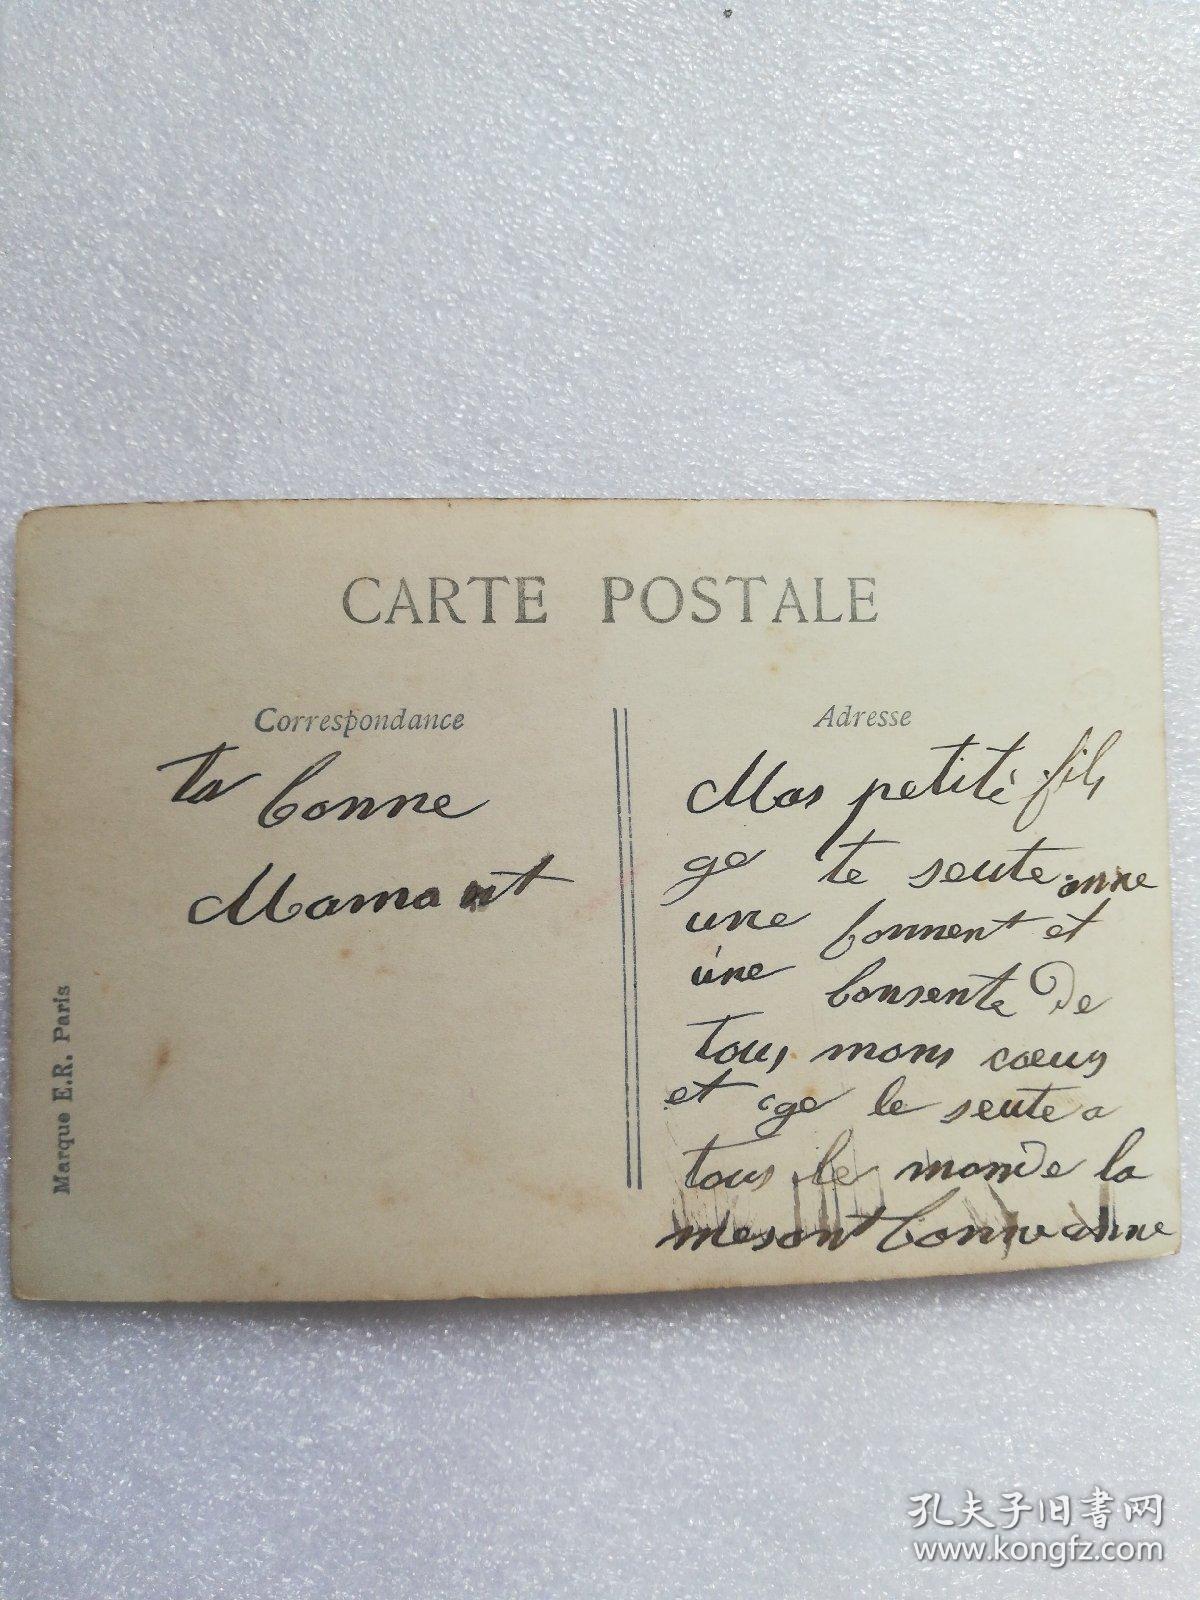 CARTE POSTALE
Correspondance
ta bonne
Mamant
Marque E.R. Paris
Adresse
Mos petite fils
ge te seute anne
une bonnent et
une bonsente De
tous mons cœus
et ge le seute a
tous le monde la
mesont bonne anne
孔夫子旧书网
www.kongfz.com